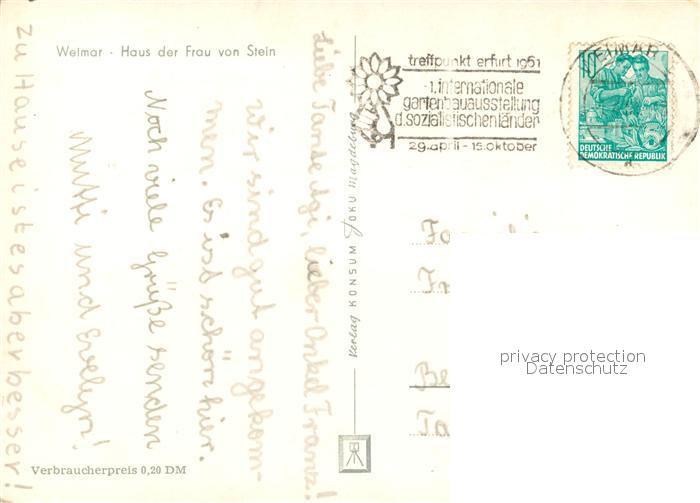 Weimar - Haus der Frau von Stein
Liebe Tante Igi, lieber Onkel Franz!
Wir sind gut angekom-
men. Es ist schön hier.
Noch viele Grüße senden
Mutti und Evelyn!
zu Hause ist es aber besser!
Verbraucherpreis 0,20 DM
Verlag KONSUM FOKU Magdeburg
treffpunkt erfurt 1961
1. internationale
gartenbauausstellung
d. sozialistischen länder
29. april - 15. oktober
WEIMAR
10
DEUTSCHE
DEMOKRATISCHE REPUBLIK
privacy protection
Datenschutz